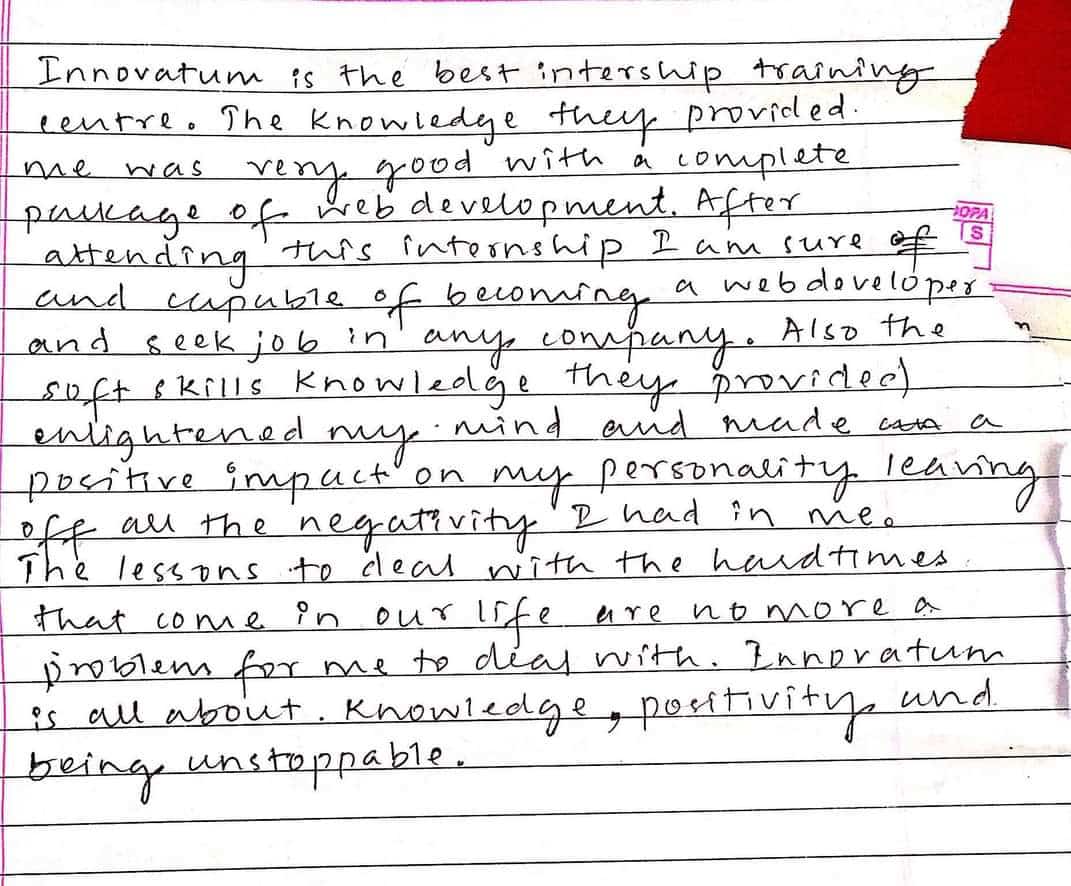 Innovatum is the best intership training
centre. The knowledge they provided.
me was very good with a complete
package of web development. After
OPA
attending this internship I am sure of
S
and capable of becoming a webdeveloper
and seek job in any company. Also the
n
soft skills knowledge they provided
enlightened my mind and made a
positive impact on my personality leaving
off all the negativity I had in me.
The lessons to deal with the hardtimes
that come in our life are no more a
problem for me to deal with. Innovatum
is all about. Knowledge, positivity and
being unstoppable.